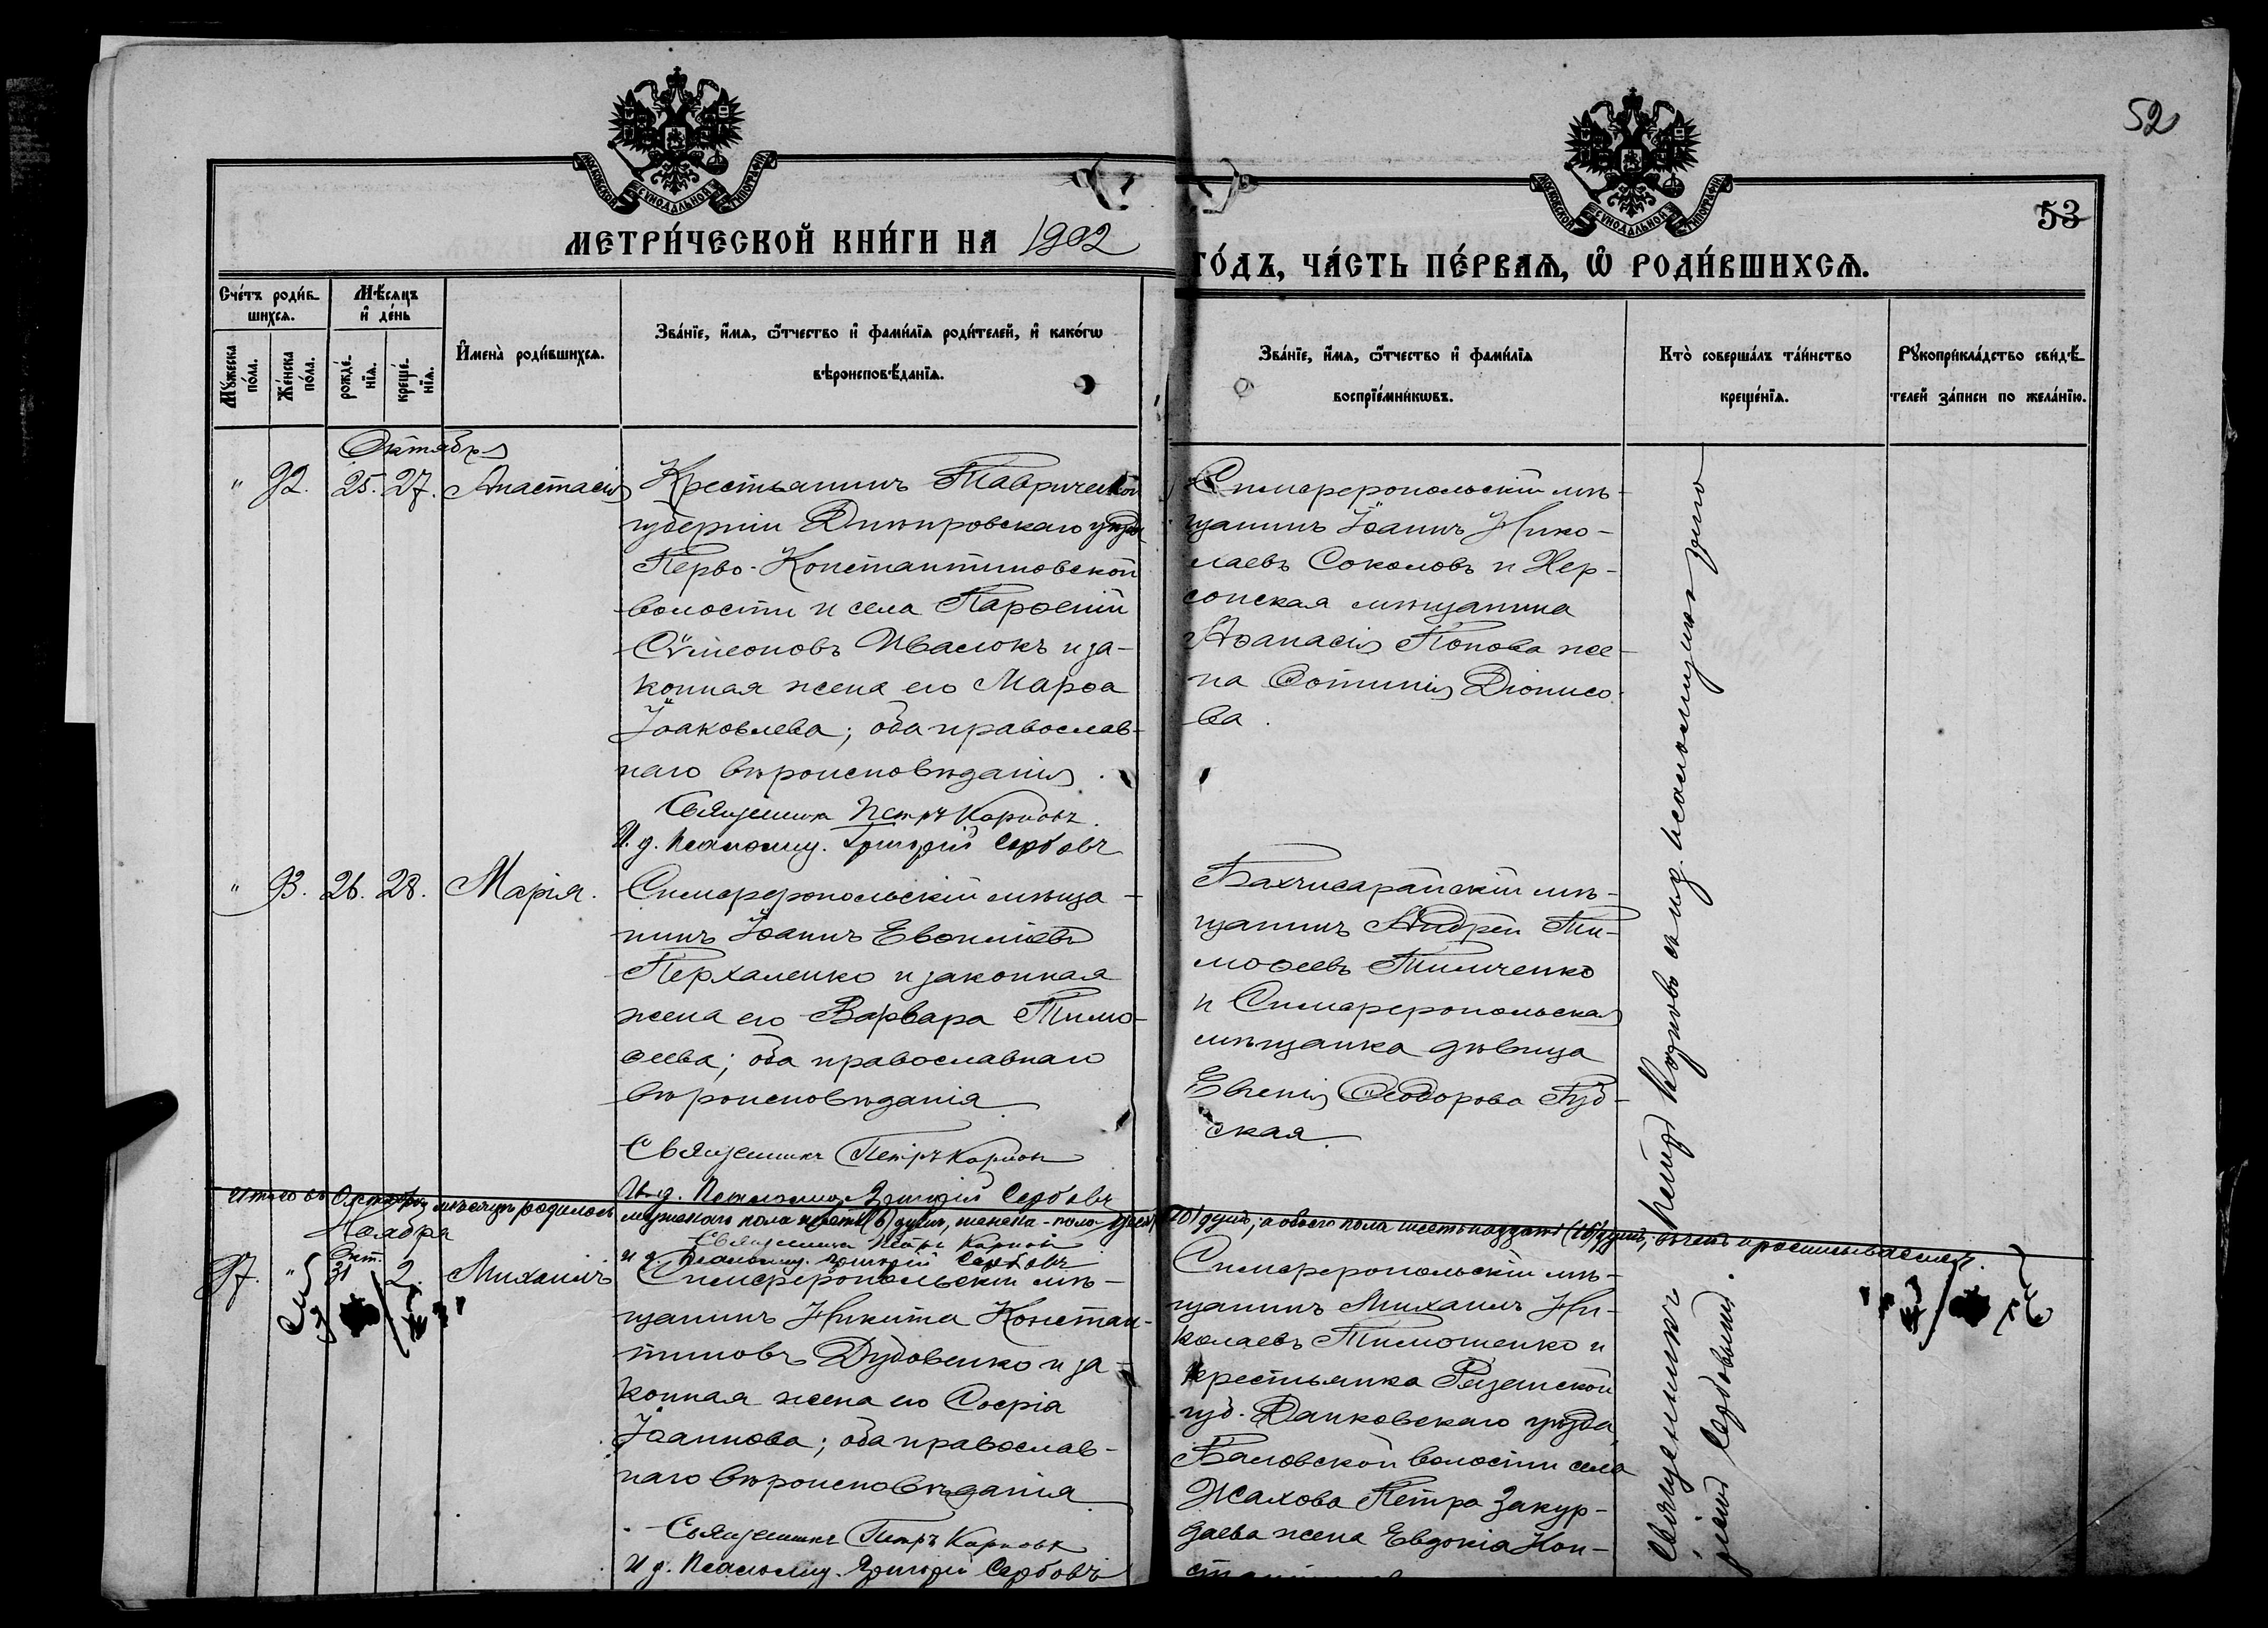 52
53
МОСКОВСКОЙ СѴНОДАЛЬНОЙ ТИПОГРАФІИ
МОСКОВСКОЙ СѴНОДАЛЬНОЙ ТИПОГРАФІИ
МЕТРИ́ЧЕСКОЙ КНИ́ГИ НА 1902
ГО́ДЪ, ЧА́СТЬ ПЕ́РВАѦ, Ѡ҆ РОДИ́ВШИХСѦ.
Сче́тъ роди́в-
шихсѧ.
Мѣ́сѧцъ
и҆ де́нь
Мꙋ́жеска
по́ла.
Же́нска
по́ла.
рожде́-
нїѧ.
креще́-
нїѧ.
И҆мена̀ роди́вшихсѧ.
Зва́нїе, и҆́мѧ, ѻ҆́тчество и҆ фами́лїѧ роди́телей, и҆ како́гѡ
вѣроисповѣ́данїѧ.
Зва́нїе, и҆́мѧ, ѻ҆́тчество и҆ фами́лїѧ
воспрїе́мникѡвъ.
Кто̀ соверша́лъ та́инство
креще́нїѧ.
Рꙋкоприкла́дство свидѣ́-
телей за́писи по жела́нїю.
Октября
" 92. 25. 27. Анастасія
Крестьянинъ Таврической
губерніи Днѣпровскаго уѣзда
Перво-Константиновской
волости и села Парѳеній
Сѵмеоновъ Ивасюкъ и за-
конная жена его Марѳа
Іоаковлева; оба православ-
наго вѣроисповѣданія.
Священникъ Петръ Карповъ.
И. д. Псаломщ. Григорій Сербовъ
Симферопольскій мѣ-
щанинъ Іоаннъ Нико-
лаевъ Соколовъ и Хер-
сонская мѣщанина
Аѳанасія Попова же-
на Фотинія Діонисо-
ва.
" 93. 26. 28. Марія.
Симферопольскій мѣща-
нинъ Іоаннъ Евѳиміевъ
Перхаленко и законная
жена его Варвара Тимо-
ѳеева; оба православнаго
вѣроисповѣданія.
Священникъ Петръ Карповъ
И. д. Псаломщ. Григорій Сербовъ
Бахчисарайскій мѣ-
щанинъ Андрей Ти-
моѳеевъ Тимченко
и Симферопольская
мѣщанка дѣвица
Евгенія Ѳеодорова Руд-
ская.
Итого въ Октябрѣ мѣсяцѣ родилось мужескаго пола шесть (6) душъ, женска-пола десять (10) душъ, а обоего пола шестьнадцать (16) душъ,
Священникъ Петръ Карповъ
И д. Псаломщ. Григорій Сербовъ
Ноября
97. " Окт. 31 2. Михаилъ
Симферопольскій мѣ-
щанинъ Никита Констан-
тиновъ Дубовенко и за-
конная жена его Софія
Іоаннова; оба православ-
наго вѣроисповѣданія
Священникъ Петръ Карповъ
И д. Псаломщ. Григорій Сербовъ
Симферопольскій мѣ-
щанинъ Михаилъ Ни-
колаевъ Тимошенко и
крестьянка Рязанской
губ. Данковскаго уѣзда
Баловской волости села
Жахова Петра Закур-
даева жена Евдокія Кон-
Священникъ Петръ Карповъ съ и. д. псаломщика Григо-
ріемъ Сербовымъ.